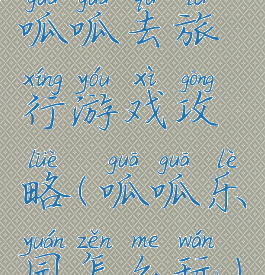 guā guā qù lǚ
呱呱去旅
xíng yóu xì gōng
行游戏攻
lüè guā guā lè
略(呱呱乐
yuán zěn me wán
园怎么玩)